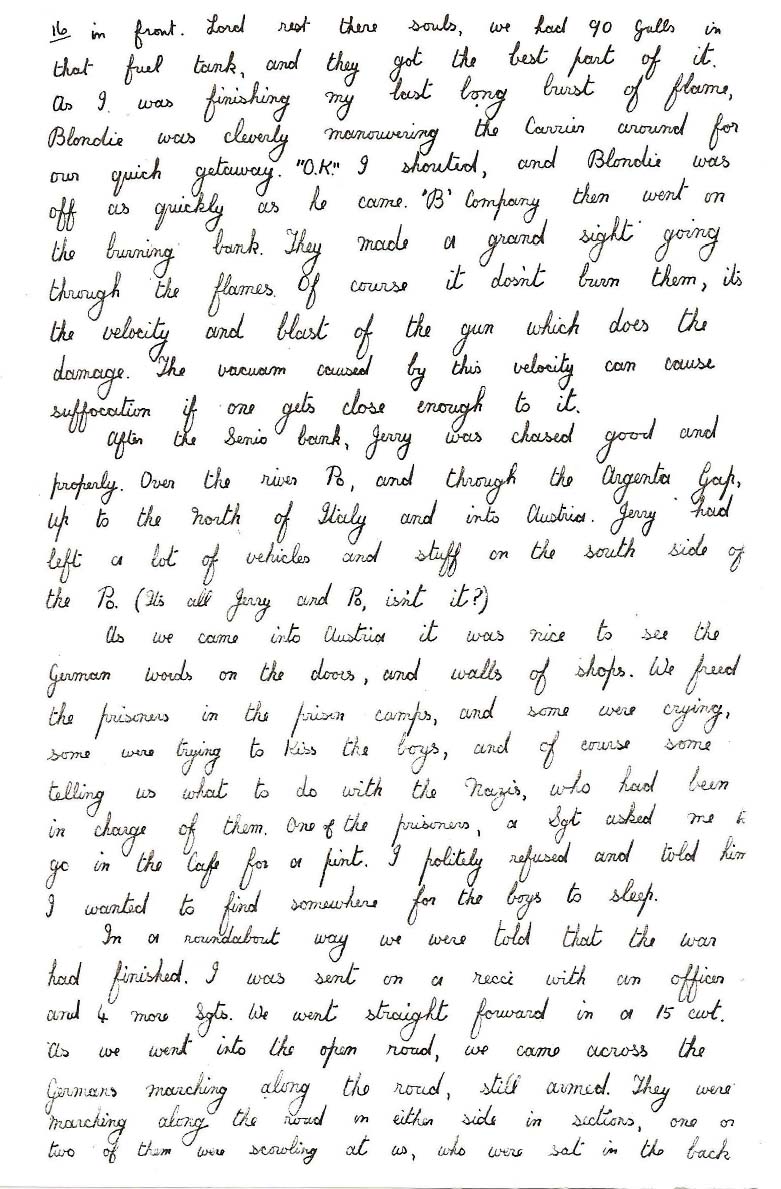 16 in front. Lord rest there souls, we had 90 galls in
that fuel tank, and they got the best part of it.
As I was finishing my last long burst of flame,
Blondie was cleverly manouvering the Carrier around for
our quick getaway. "O.K." I shouted, and Blondie was
off as quickly as he came. 'B' Company then went on
the burning bank. They made a grand sight going
through the flames. Of course it dosn't burn them, its
the velocity and blast of the gun which does the
damage. The vacuam caused by this velocity can cause
suffocation if one gets close enough to it.
After the Senio bank, Jerry was chased good and
properly. Over the river Po, and through the Argenta Gap,
up to the North of Italy and into Austria. Jerry had
left a lot of vehicles and stuff on the south side of
the Po. (Its all Jerry and Po, isn't it?)
As we came into Austria it was nice to see the
German words on the doors, and walls of shops. We freed
the prisoners in the prison camps, and some were crying,
some were trying to kiss the boys, and of course some
telling us what to do with the Nazis, who had been
in charge of them. One of the prisoners, a Sgt asked me to
go in the Cafe for a pint. I politely refused and told him
I wanted to find somewhere for the boys to sleep.
In a roundabout way we were told that the war
had finished. I was sent on a recci with an officer
and 4 more Sgts. We went straight forward in a 15 cwt.
As we went into the open road, we came across the
Germans marching along the road, still armed. They were
marching along the road on either side in sections, one or
two of them were scowling at us, who were sat in the back